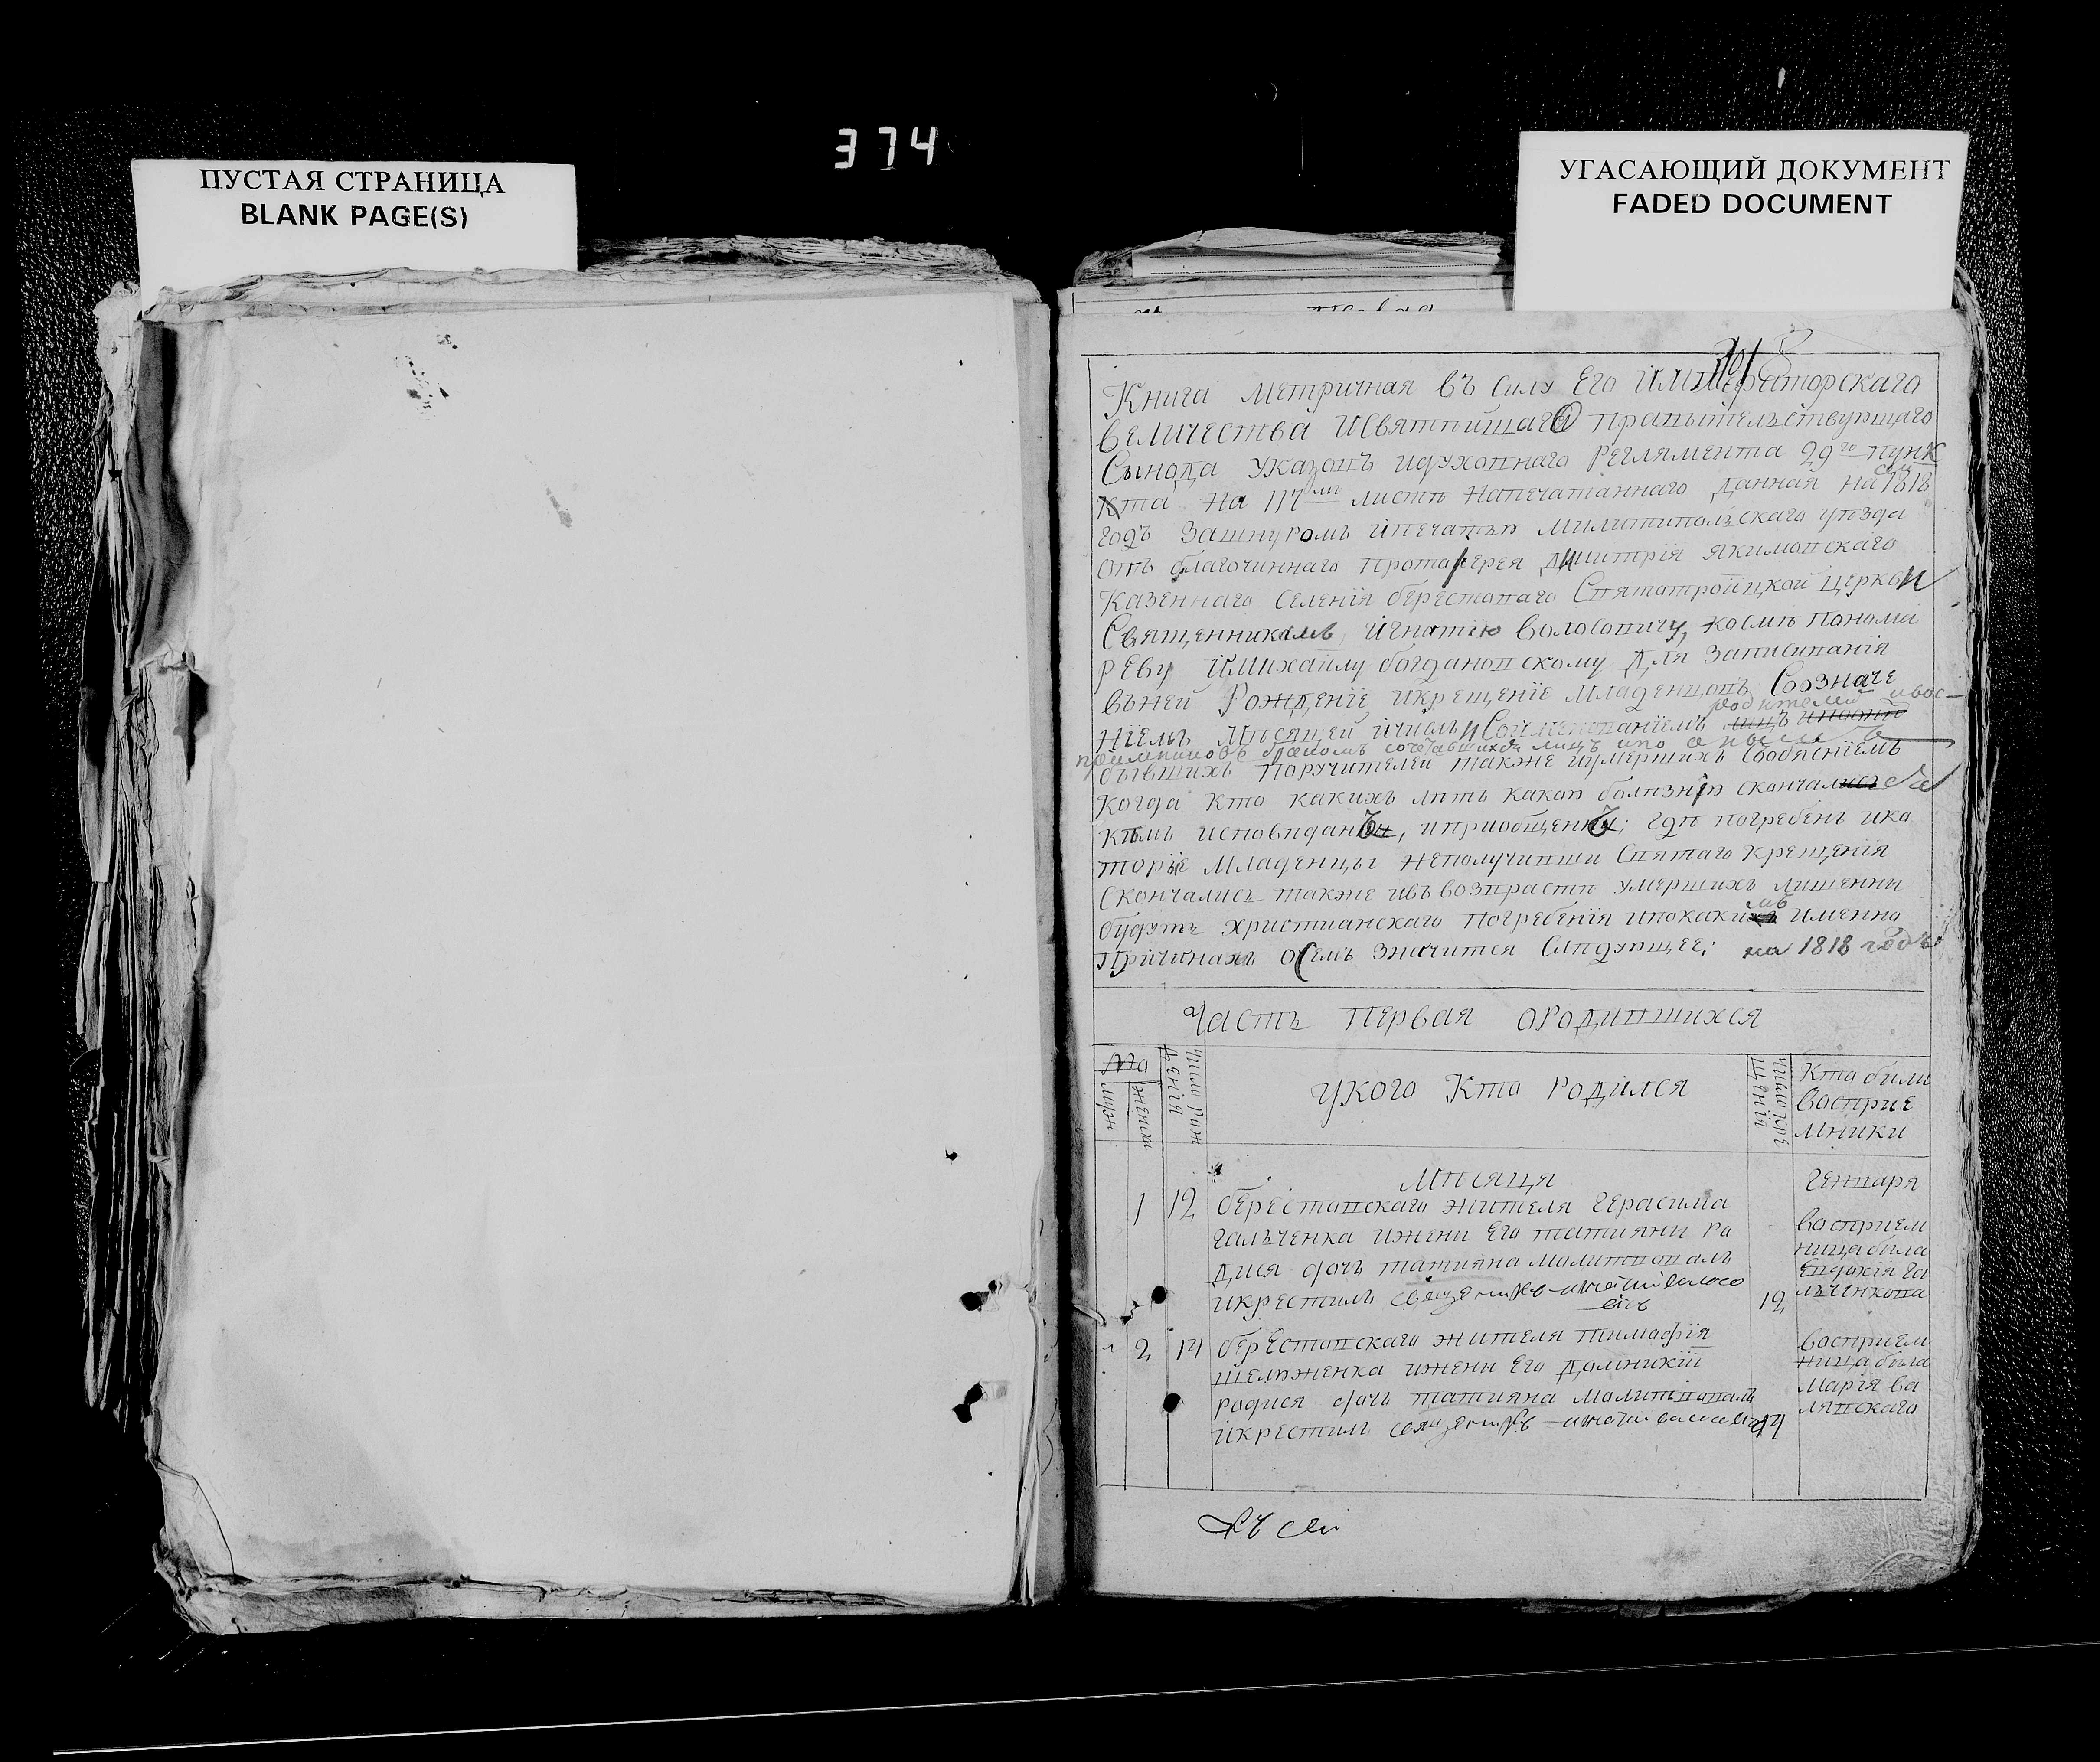 374
ПУСТАЯ СТРАНИЦА
BLANK PAGE(S)
УГАСАЮЩИЙ ДОКУМЕНТ
FADED DOCUMENT
Книга метричная въ силу Его Императорскаго
величества исвятпишаго працителствующаго
Сынода указопъ идухопнаго регляментa 29го пунк
кта на 117мъ листп напечатаннаго данная на 1818
годъ зашнуромъ ипечатью милитипольскаго упзда
отъ благочиннаго протоіерея димитрія якимопскаго
казенного селенія берестопаго Спятатройцкой церкви
Священникамъ, игнатію волосопичу, космп панома
реву имихаилу богданопскому для записипанія
въней рожденіе икрещеніе младенцопъ Собозначе
ніемъ мпсяцей ичиселъ Соименопаніемъ родителей ивос-
приемниковъ бракомъ сочетавшихся лицъ ипо
бывшихъ поручителей также иумершихъ Собобясніемъ
когда кто какихъ лптъ какою болпзнію скончался
кпмъ исповпданъ, иприобщенъ; гдп погребенъ ика
торіе младенцы неполучивши Спятаго крещенія
скончались также ивъ возпрасти умершихъ лишенны
будутъ христианскаго погребенія ипокакимъ именно
Причинахъ осемъ значится Слпдующее: на 1818 годъ
Часть первая ородипшихся
муж
женска
число рож
денія
укого Кто родился
число кре
щенія
Кто били
восприе
мники
Мпсяця
генпаря
1 12 берестопскаго жителя герасима
гальченка ижени его татияни ро
дися дочь татияна молитпопалъ
икрестилъ священникъ игнатий волосо
вичъ
12
восприем
ница била
Епдокія га
льченкопа
2 14 берестопскаго жителя тимафія
шелпженка ижени его домникіи
родися дочь татияна молитпопалъ
икрестилъ священникъ игнатий волосович
14
восприем
ница била
марія ва
ляпскаго